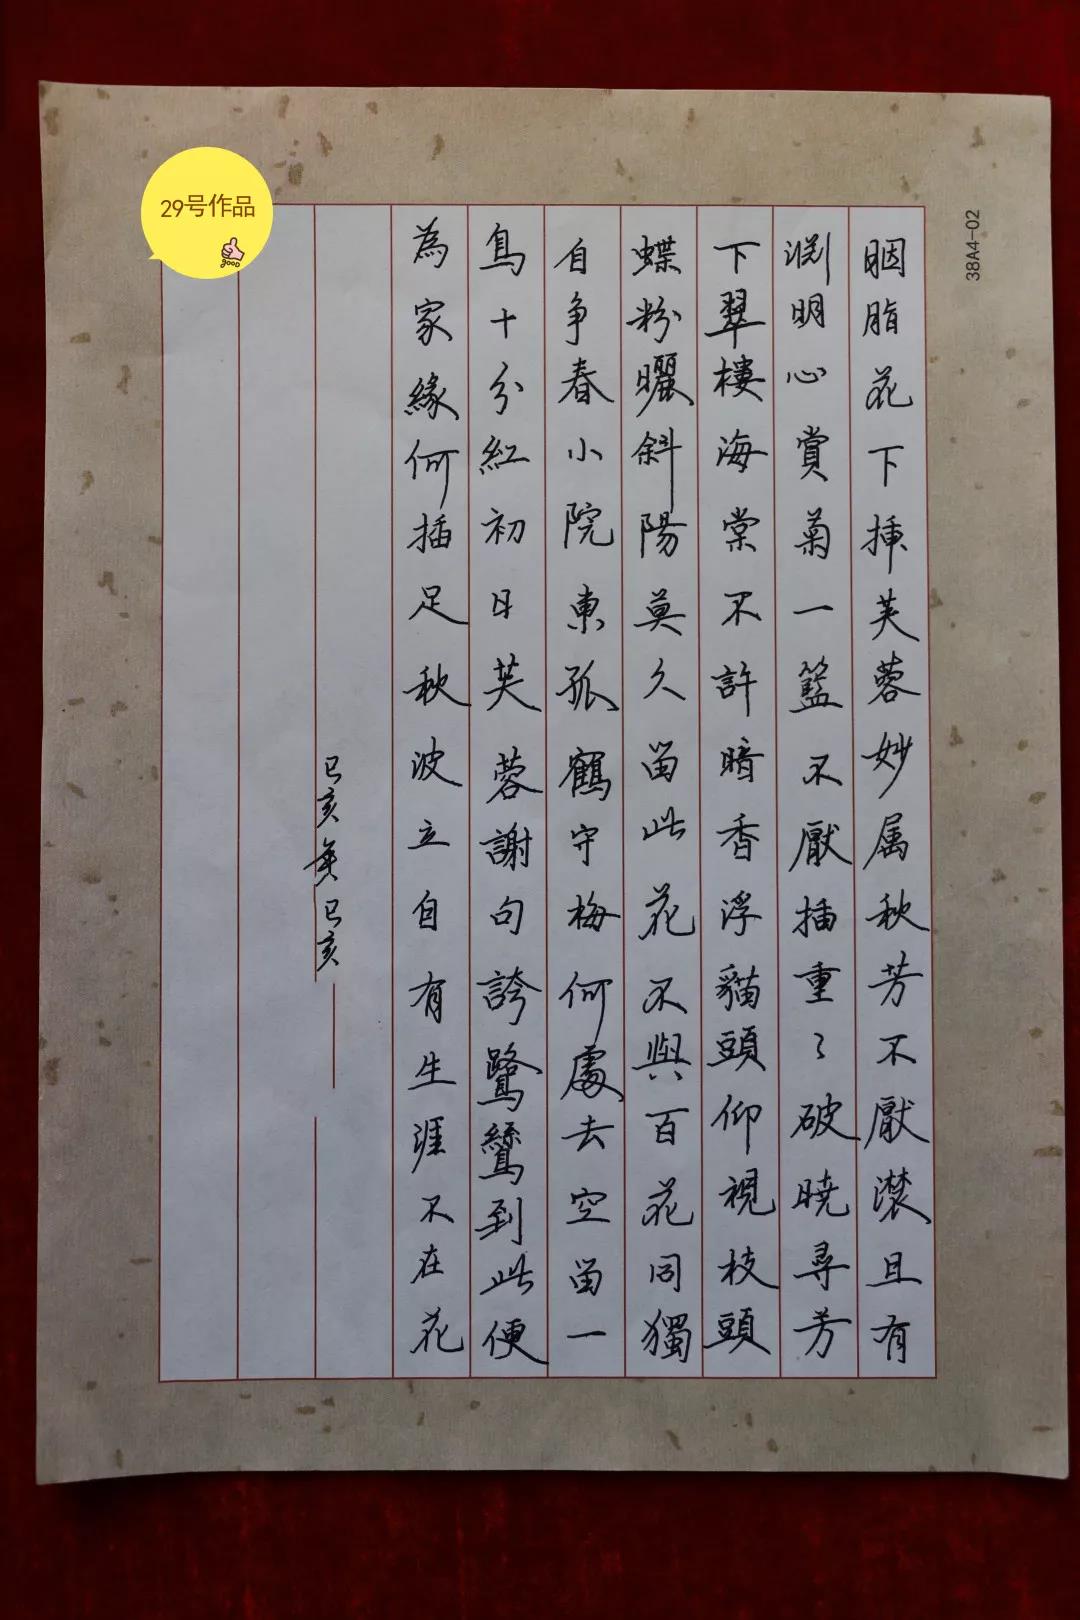 29号作品
good
38A4-02
胭脂花下插芙蓉妙属秋芳不厭濃且有
渊明心賞菊一籃不厭插重〻破曉尋芳
下翠樓海棠不許暗香浮貓頭仰視枝頭
蝶粉曬斜陽莫久留此花不與百花同獨
自争春小院東孤鶴守梅何處去空留一
鳥十分紅初日芙蓉謝句誇鷺鷥到此便
為家緣何插足秋波立自有生涯不在花
己亥年己亥